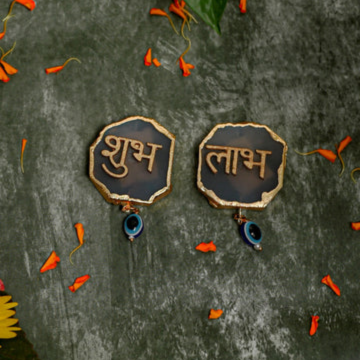 शुभ लाभ